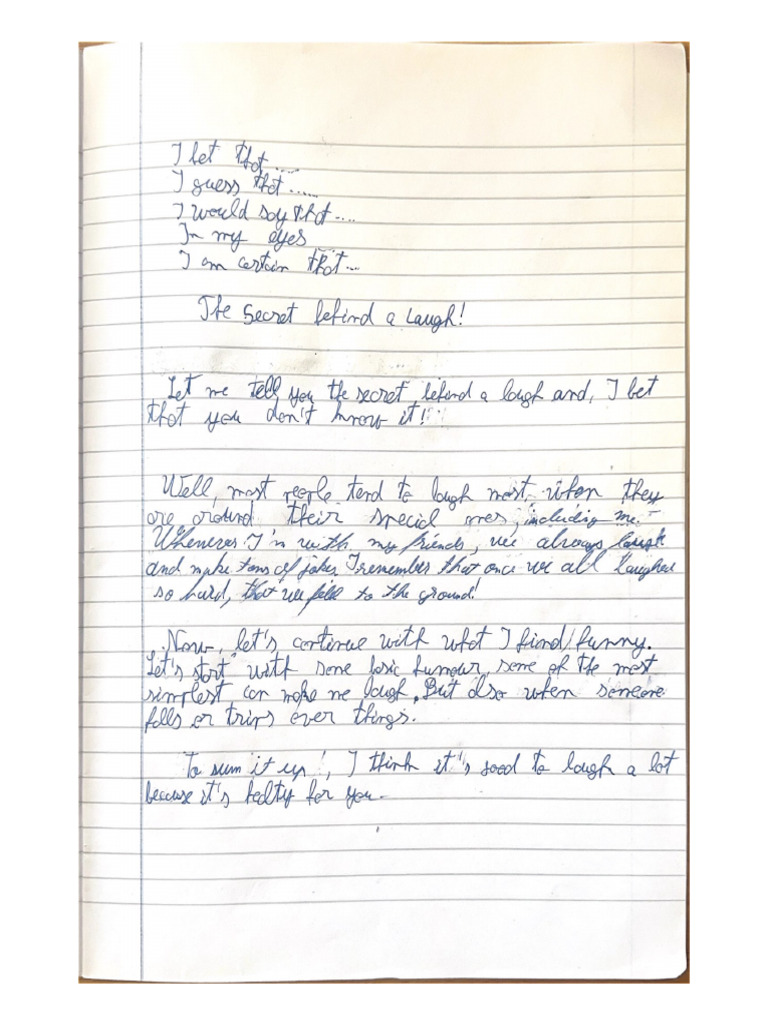 I bet that ....
I guess that ......
I would say that ....
In my eyes ....
I am certain that ...
The Secret behind a Laugh!
Let me tell you the secret behind a laugh and, I bet
that you don't know it!
Well, most people tend to laugh most when they
are around their special ones, including me.
Whenever I'm with my friends, we always laugh
and make tons of jokes. I remember that once we all laughed
so hard, that we fell to the ground!
Now, let's continue with what I find funny.
Let's start with some basic humour, some of the most
simplest can make me laugh. But also when someone
falls or trips over things.
To sum it up!, I think it's good to laugh a lot
because it's healty for you.